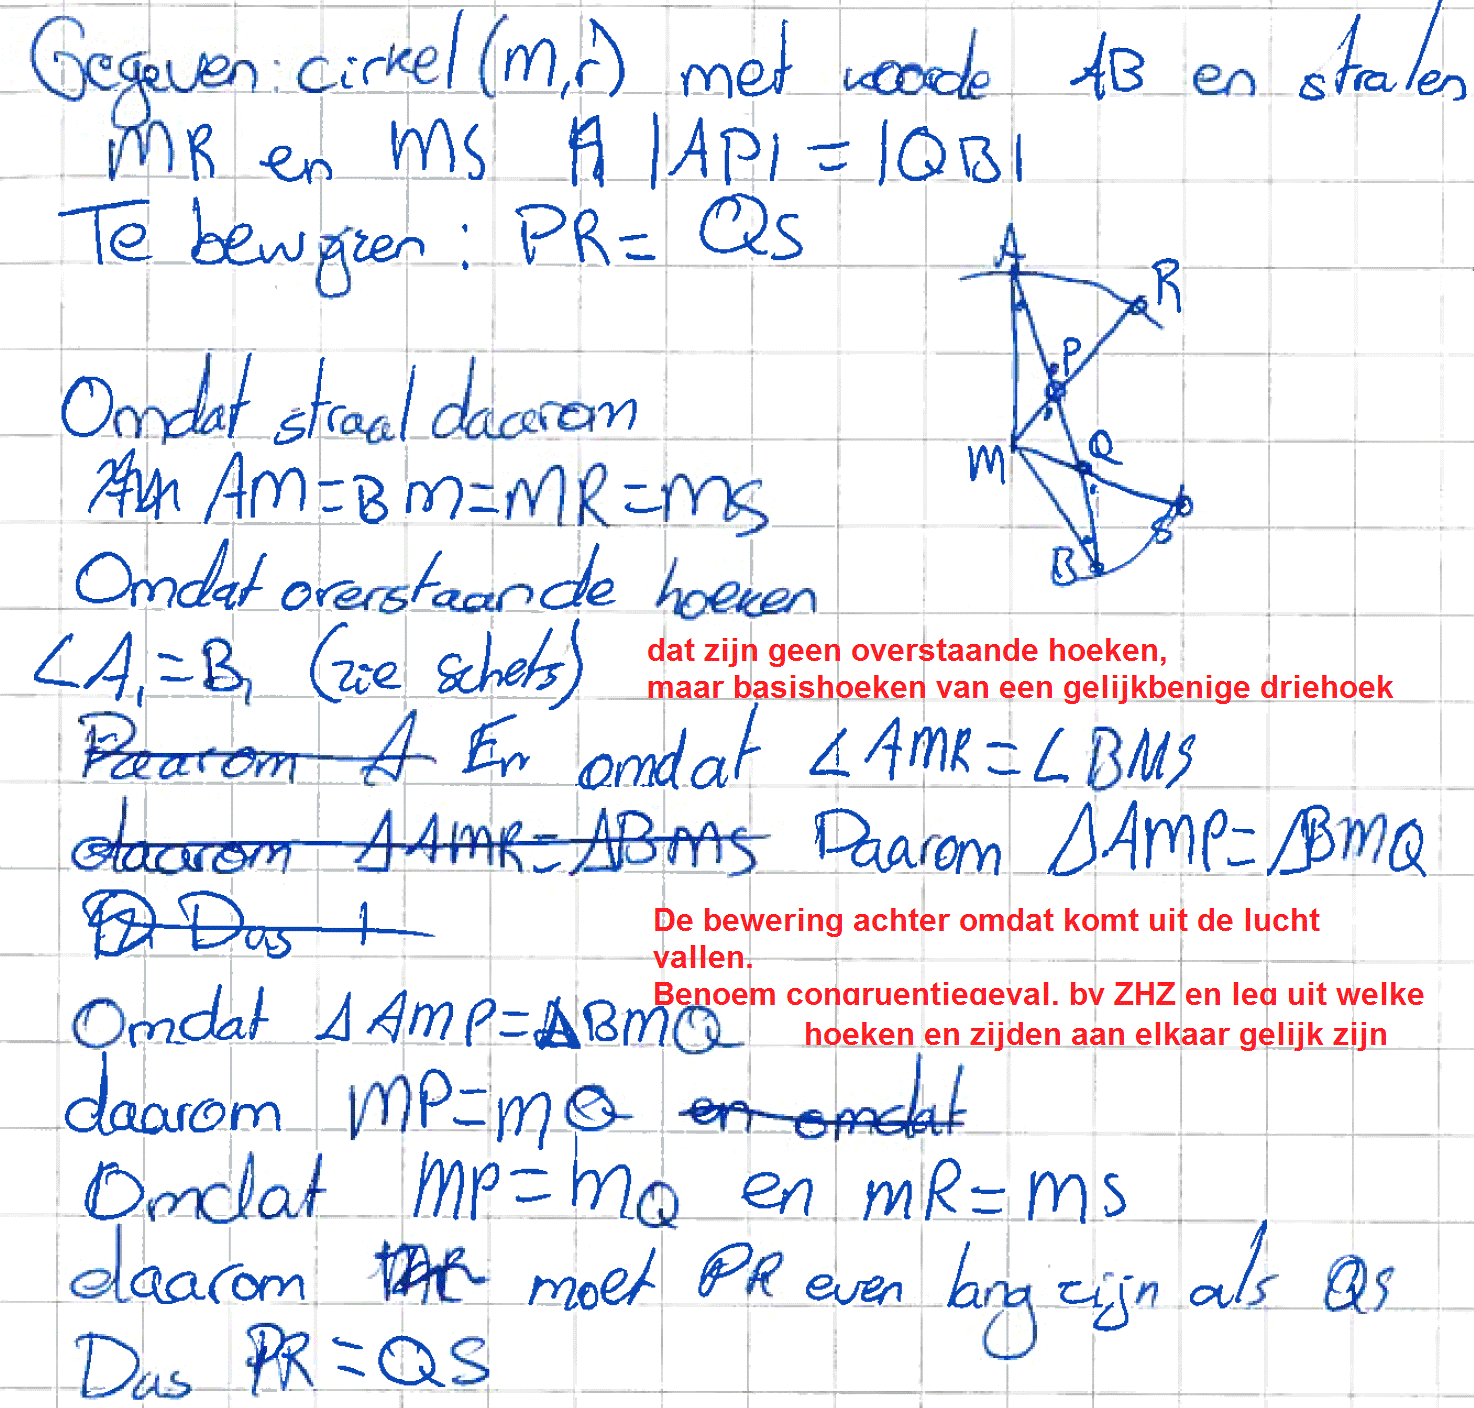 Gegeven: cirkel (M,r) met koorde AB en stralen
MR en MS |AP| = |QB|
Te bewijzen: PR = QS
A
R
P
M
Q
S
B
Omdat straal daarom
AM = BM = MR = MS
Omdat overstaande hoeken
∠A₁ = B₁ (zie schets)
dat zijn geen overstaande hoeken,
maar basishoeken van een gelijkbenige driehoek
Daarom A En omdat ∠AMR = ∠BMS
daarom ΔAMR = ΔBMS Daarom ΔAMP = ΔBMQ
Dus
De bewering achter omdat komt uit de lucht
vallen.
Benoem congruentiegeval. bv ZHZ en leg uit welke
hoeken en zijden aan elkaar gelijk zijn
Omdat ΔAMP = ΔBMQ
daarom MP = MQ en omdat
Omdat MP = MQ en MR = MS
daarom moet PR even lang zijn als QS
Dus PR = QS